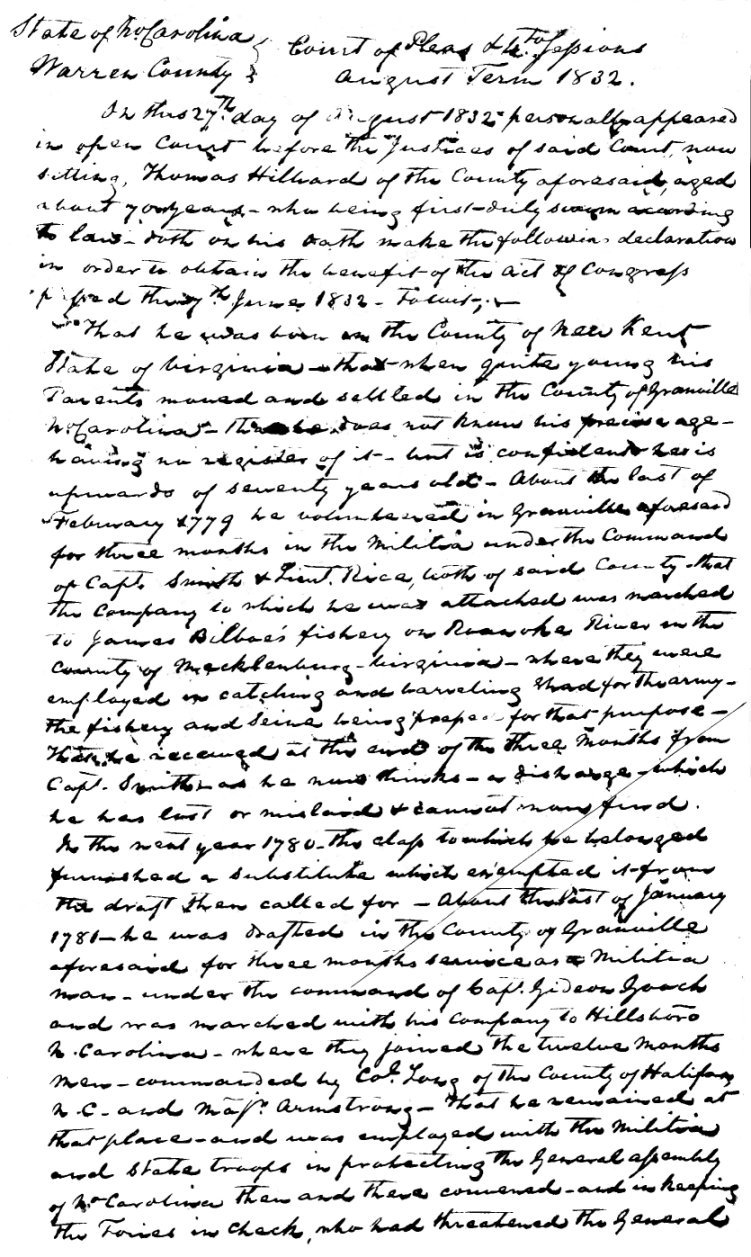 State of No. Carolina } Court of Pleas & Qr. Sessions
Warren County } August Term 1832.
On this 27th day of August 1832 personally appeared
in open Court before the Justices of said Court, now
sitting, Thomas Hilliard of the County aforesaid, aged
about 70 years - who being first duly sworn according
to law - doth on his oath make the following declaration
in order to obtain the benefit of the act of Congress
passed the 7th June 1832 - Towit; -
That he was born in the County of New Kent
State of Virginia - that when quite young his
Parents moved and settled in the County of Granville
No. Carolina - that he does not know his precise age -
having no register of it - but is confident he is
upwards of seventy years old - About the last of
February 1779 he volunteered in Granville aforesaid
for three months in the Militia under the Command
of Capt. Smith & Lieut. Rice, both of said County - that
the Company to which he was attached was marched
to James Bilboe's fishery on Roanoke River in the
County of Mecklenburg - Virginia - where they were
employed in catching and barreling Shad for the army -
the fishery and Seine being for that purpose -
That he received at the end of the three Months from
Capt. Smith as he now thinks - a discharge - which
he has lost or mislaid & cannot now find.
In the next year 1780 - the class to which he belonged
furnished a substitute which exempted it from
the draft then called for - About the last of January
1781 - he was drafted in the County of Granville
aforesaid for three months service as a Militia
man - under the command of Capt. Gideon Gooch
and was marched with his company to Hillsboro
N. Carolina - where they joined the twelve months
men - commanded by Col. Long of the County of Halifax
N. C. - and Majr. Armstrong - That he remained at
that place - and was employed with the Militia
and State troops in protecting the General assembly
of No. Carolina then and there convened - and in keeping
the Tories in check, who had threatened the General